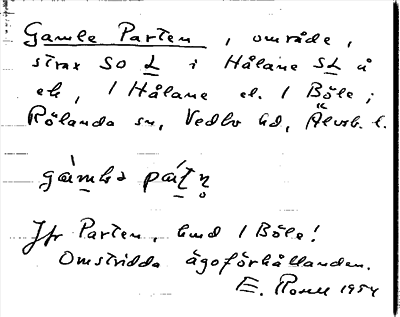 Gamle Parten, område,
strax SO L i Hålane SL å
ek, 1 Hålane el. 1 Böle;
Rölanda sn, Vedbo hd, Älvsb. l.
gàmlə pát̯n̥
Jfr Parten, hmd 1 Böle!
Omstridda ägoförhållanden.
E. Rosell 1954